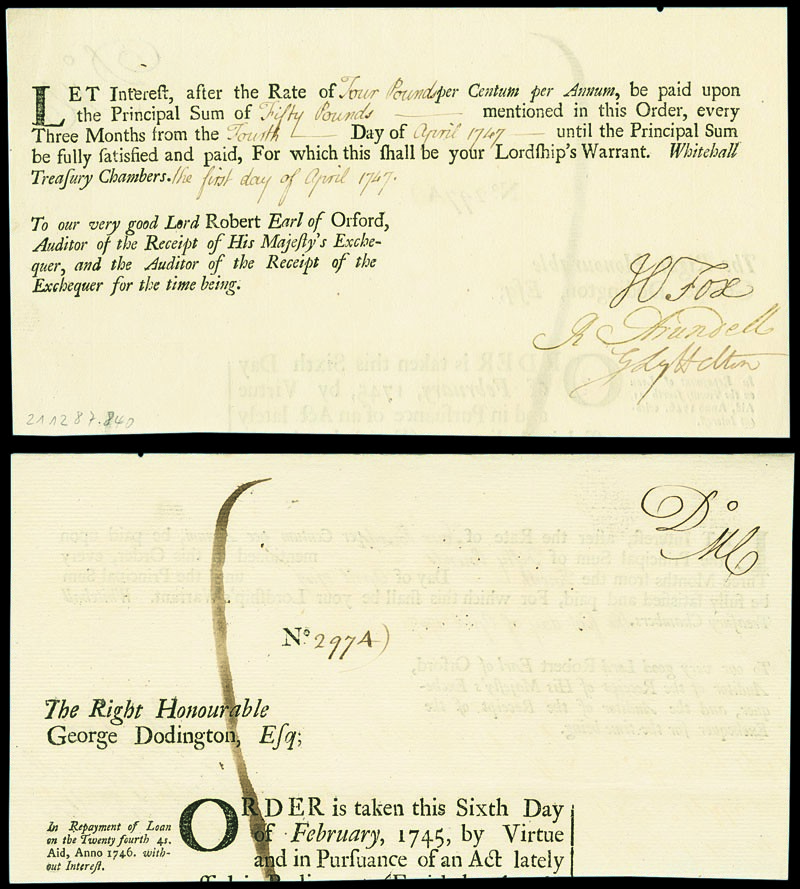 LET Intereſt, after the Rate of Four Pounds per Centum per Annum, be paid upon
the Principal Sum of Fifty Pounds —— mentioned in this Order, every
Three Months from the Fourth —— Day of April 1747 —— until the Principal Sum
be fully ſatisfied and paid, For which this ſhall be your Lordſhip's Warrant. Whitehall
Treaſury Chambers. the first day of April 1747.
To our very good Lord Robert Earl of Orford,
Auditor of the Receipt of His Majeſty's Exche-
quer, and the Auditor of the Receipt of the
Exchequer for the time being.
H Fox
R Arundell
G Lyttelton
211287.840
No. 2974)
The Right Honourable
George Dodington, Eſq;
In Repayment of Loan
on the Twenty fourth 4s.
Aid, Anno 1746. with-
out Intereſt.
ORDER is taken this Sixth Day
of February, 1745, by Virtue
and in Purſuance of an Act lately